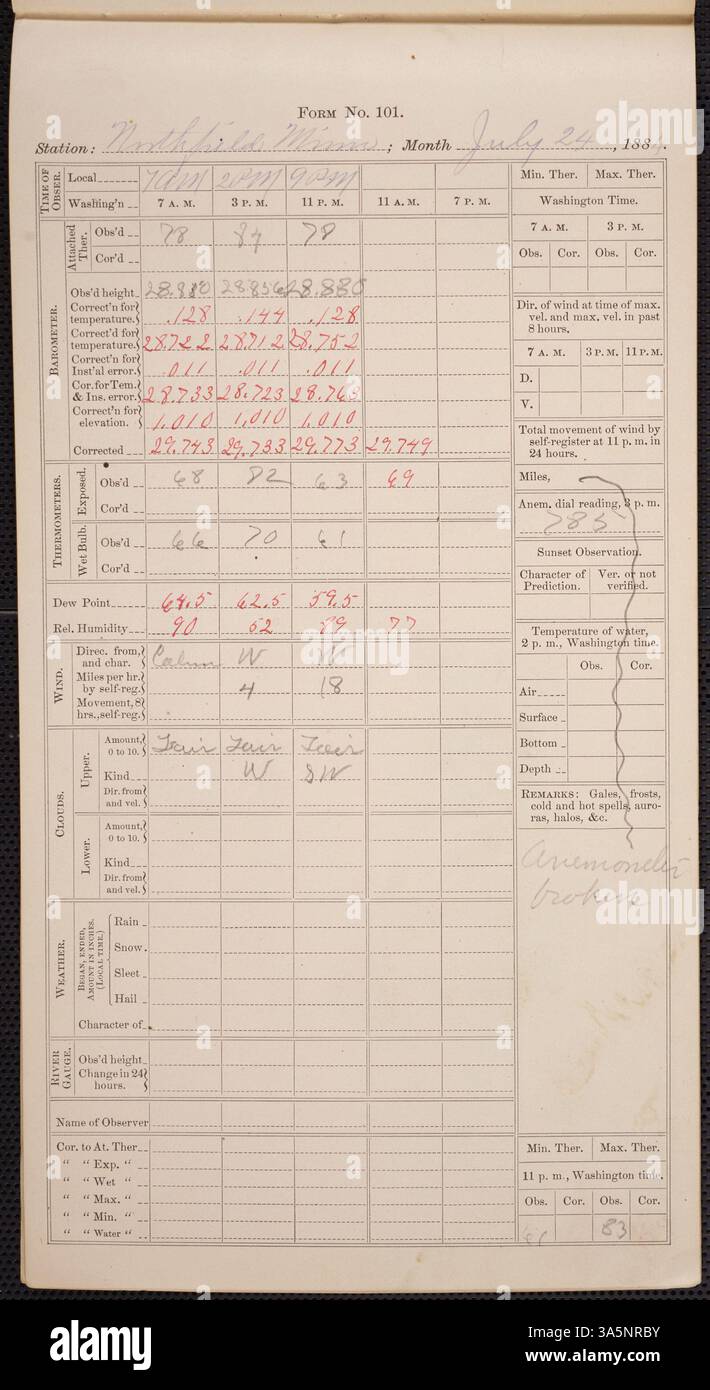 FORM NO. 101.
Station: Northfield Minn ; Month July 24 , 188 .
TIME OF OBSER.
Local 7 AM 2 PM 9 PM
Washing'n 7 A. M. 3 P. M. 11 P. M. 11 A. M. 7 P. M.
Attached Ther.
Obs'd 78 84 78
Cor'd
BAROMETER.
Obs'd height 28.856 28.880
Correct'n for temperature. .128 .144 .128
Correct'd for temperature. 28.722 28.712 28.752
Correct'n for Inst'al error. .011 .011 .011
Cor. for Tem. & Ins. error. 28.733 28.723 28.763
Correct'n for elevation. 1.010 1.010 1.010
Corrected 29.743 29.733 29.773 29.749
THERMOMETERS.
Exposed.
Obs'd 68 82 63 69
Cor'd
Wet Bulb.
Obs'd 66 70 61
Cor'd
Dew Point 64.5 62.5 59.5
Rel. Humidity 90 52 89 77
WIND.
Direc. from, and char. Calm W W
Miles per hr. by self-reg. 4 18
Movement, 8 hrs., self-reg.
CLOUDS.
Upper.
Amount, 0 to 10. Fair Fair Fair
Kind W SW
Dir. from and vel.
Lower.
Amount, 0 to 10.
Kind
Dir. from and vel.
WEATHER.
BEGAN, ENDED, AMOUNT IN INCHES. (LOCAL TIME.)
Rain
Snow.
Sleet
Hail
Character of
RIVER GAUGE.
Obs'd height
Change in 24 hours.
Name of Observer
Cor. to At. Ther
" " Exp. "
" " Wet "
" " Max. "
" " Min. "
" " Water "
Min. Ther. Max. Ther.
Washington Time.
7 A. M. 3 P. M.
Obs. Cor. Obs. Cor.
Dir. of wind at time of max. vel. and max. vel. in past 8 hours.
7 A. M. 3 P.M. 11 P.M.
D.
V.
Total movement of wind by self-register at 11 p. m. in 24 hours.
Miles,
Anem. dial reading, 3 p. m.
785
Sunset Observation.
Character of Prediction. Ver. or not verified.
Temperature of water, 2 p. m., Washington time.
Obs. Cor.
Air
Surface
Bottom
Depth
REMARKS: Gales, frosts, cold and hot spells, auroras, halos, &c.
broken
Min. Ther. Max. Ther.
11 p. m., Washington time.
Obs. Cor. Obs. Cor.
83
alamy
Image ID: 3A5NRBY
www.alamy.com